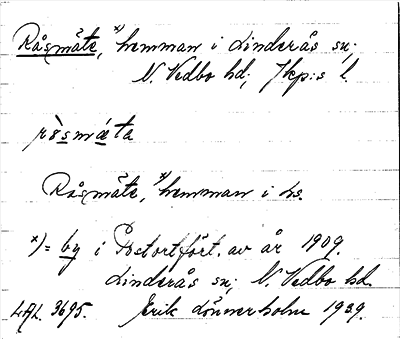 Råsmåte, x) hemman i Linderås sn;
N. Vedbo hd; Jkp:s l.
Råsmåte, x) hemman i hs.
x) = by i Postortfört. av år 1909.
Linderås sn; N. Vedbo hd.
LAL. 3695. Erik Lönnerholm 1939.